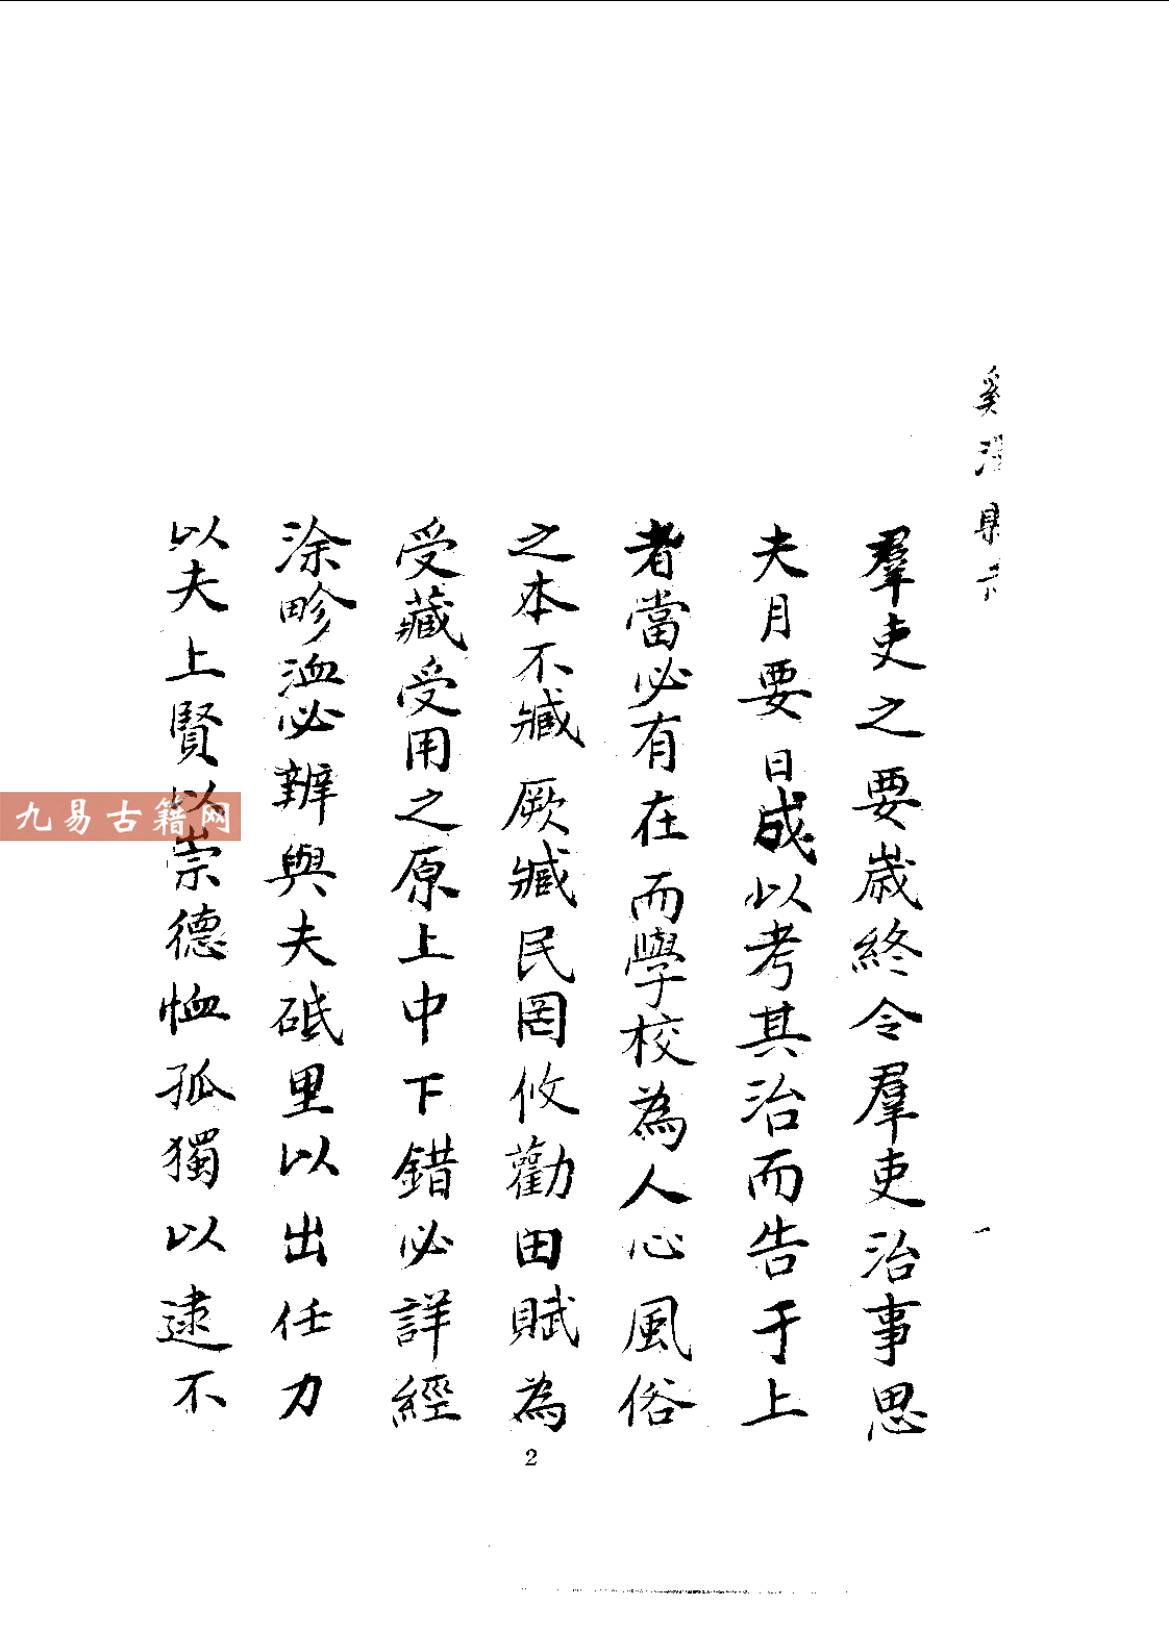 羣吏之要嵗終令羣吏治事思
夫月要日成以考其治而告于上
者當必有在而學校為人心風俗
之本不臧厥臧民罔攸勸田賦為
受藏受用之原上中下錯必詳經
涂畛洫必辨與夫砥里以出任力
以夫上賢以崇德恤孤獨以逮不
一
九易古籍网
2